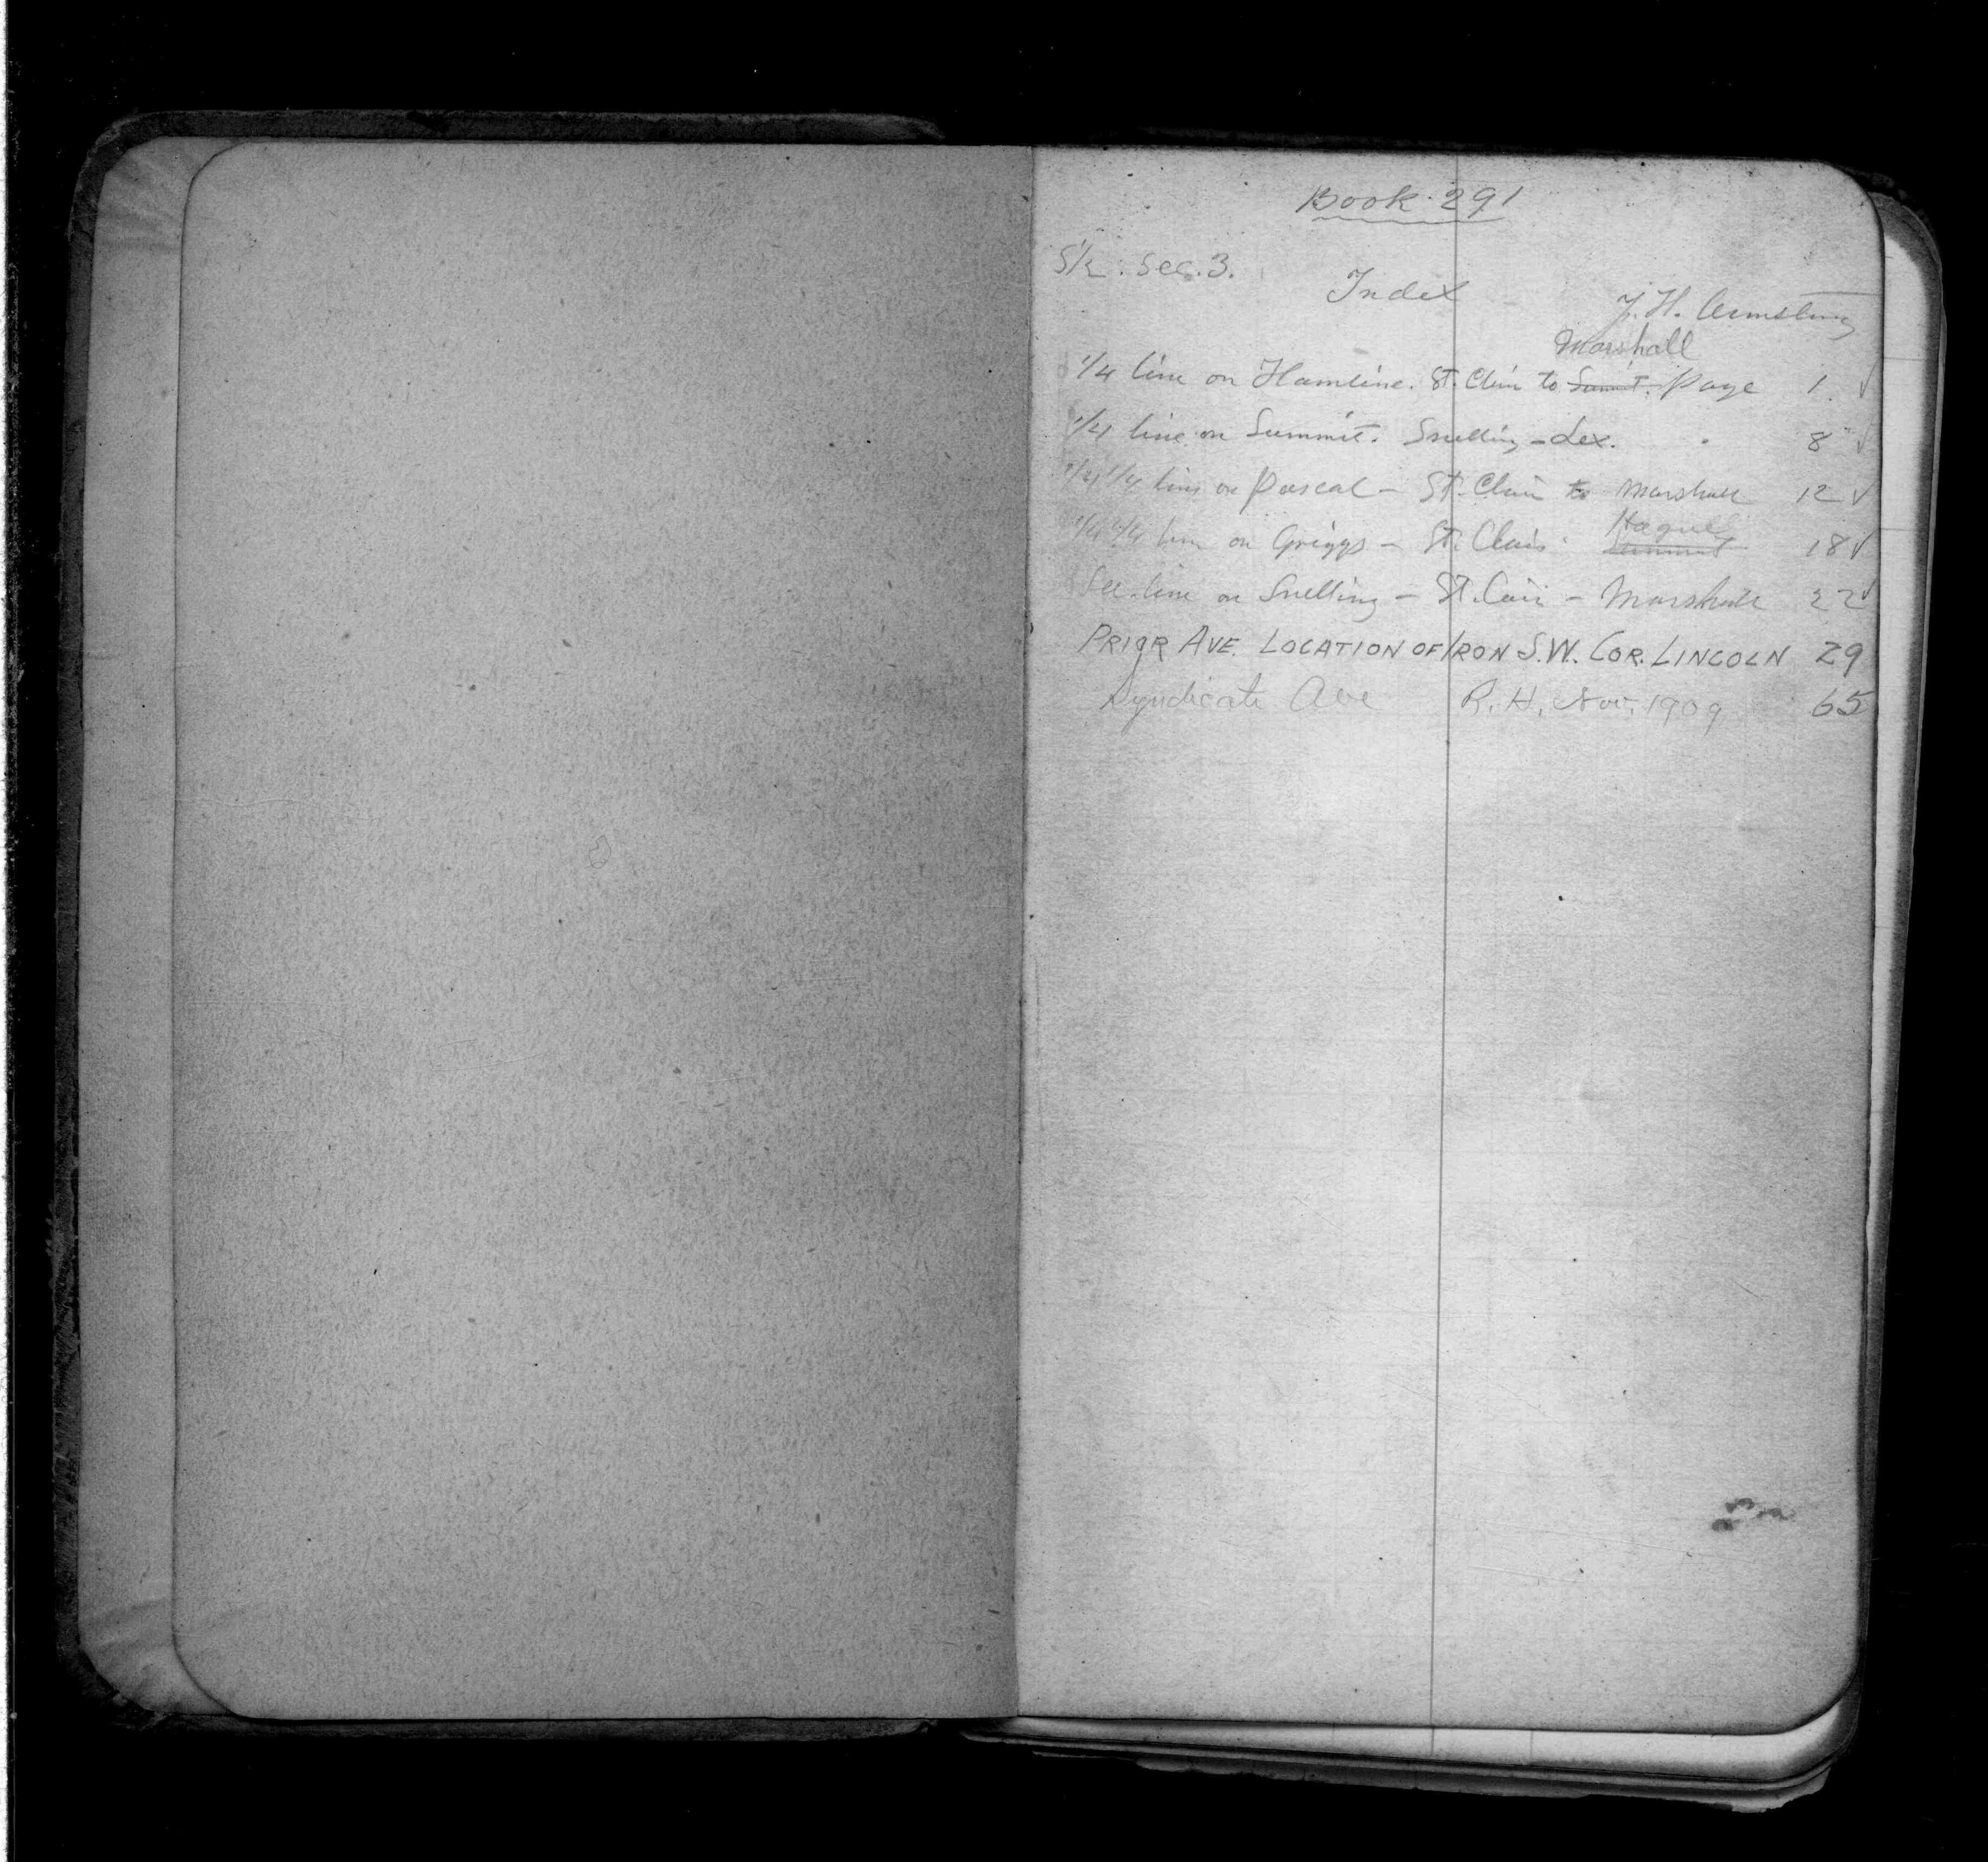 Book 291
S½ Sec. 3.
Index
J. H. Armstrong
Marshall
1/4 line on Hamline. St. Clair to Summit. Page 1. ✓
1/4 line on Summit. Snelling - Lex. 8 ✓
1/4 1/4 line on Pascal - St. Clair to Marshall 12 ✓
Hague
1/4 1/4 line on Griggs - St. Clair Summit 18 ✓
Sec. line on Snelling - St. Clair - Marshall 22 ✓
PRIOR AVE. LOCATION OF IRON S.W. COR. LINCOLN 29
Syndicate Ave R. H. Nov. 1909 65